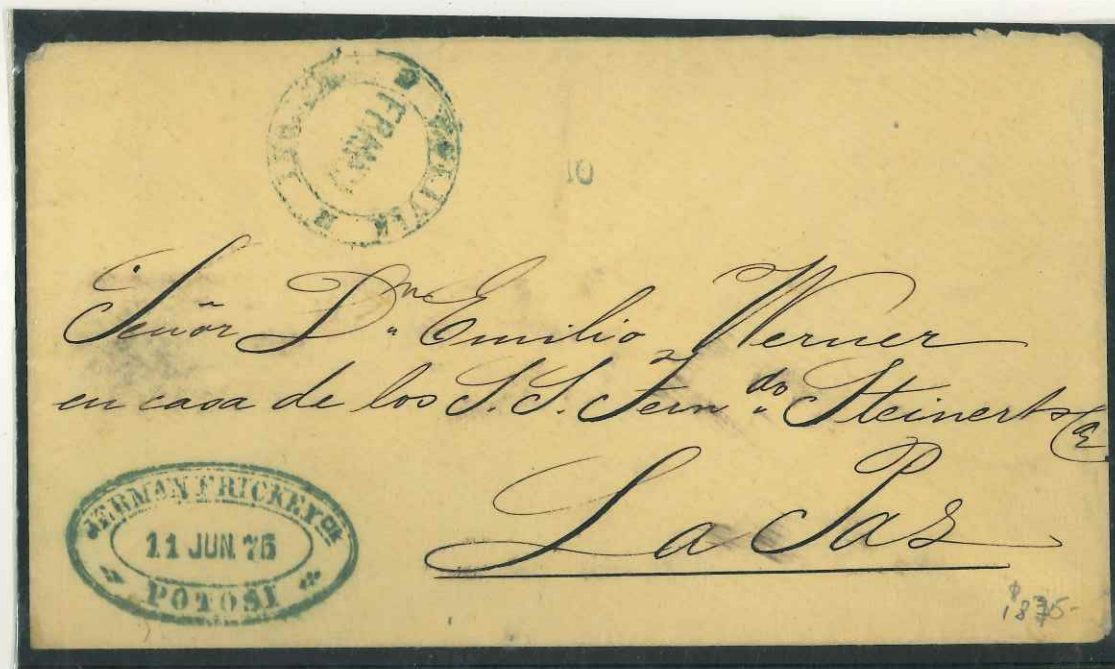 BOLIVIA
FRANCA
10
Señor Dn. Emilio Werner
en casa de los S.S. Fern.do Steinerts
La Paz
JERMAN FRICKE Y Ca
11 JUN. 75
POTOSI